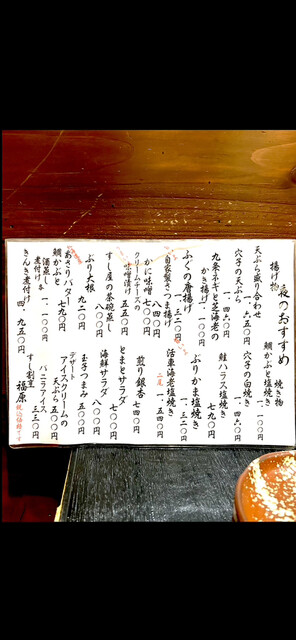 夜のおすすめ
揚げ物
天ぷら盛り合わせ
一、六五〇円
穴子の天ぷら
一、四六〇円
九条ネギと芝海老の
かき揚げ 一、一〇〇円
ふくの唐揚げ
一、三二〇円
自家製さつま揚げ
八四〇円
かに味噌 七〇〇円
クリームチーズの
味噌漬け 五五〇円
すし屋の茶碗蒸し
八〇〇円
ぶり大根
九二〇円
あさりバター
七九〇円
鯛かぶと
酒蒸し
煮付け 一、一〇〇円
きんき煮付け
四、九五〇円
焼き物
鯛かぶと塩焼き
一、一〇〇円
穴子の白焼き
一、四六〇円
鮭ハラス塩焼き
七九〇円
ぶりかま塩焼き
一、三二〇円
活車海老塩焼き
二尾
一、五四〇円
煎り銀杏 七四〇円
とまとサラダ
七〇〇円
海鮮サラダ
八〇〇円
玉子つまみ
五五〇円
デザート
アイスクリームの
天ぷら 五五〇円
バニラアイス
三三〇円
すし割烹
福原
税込価格です